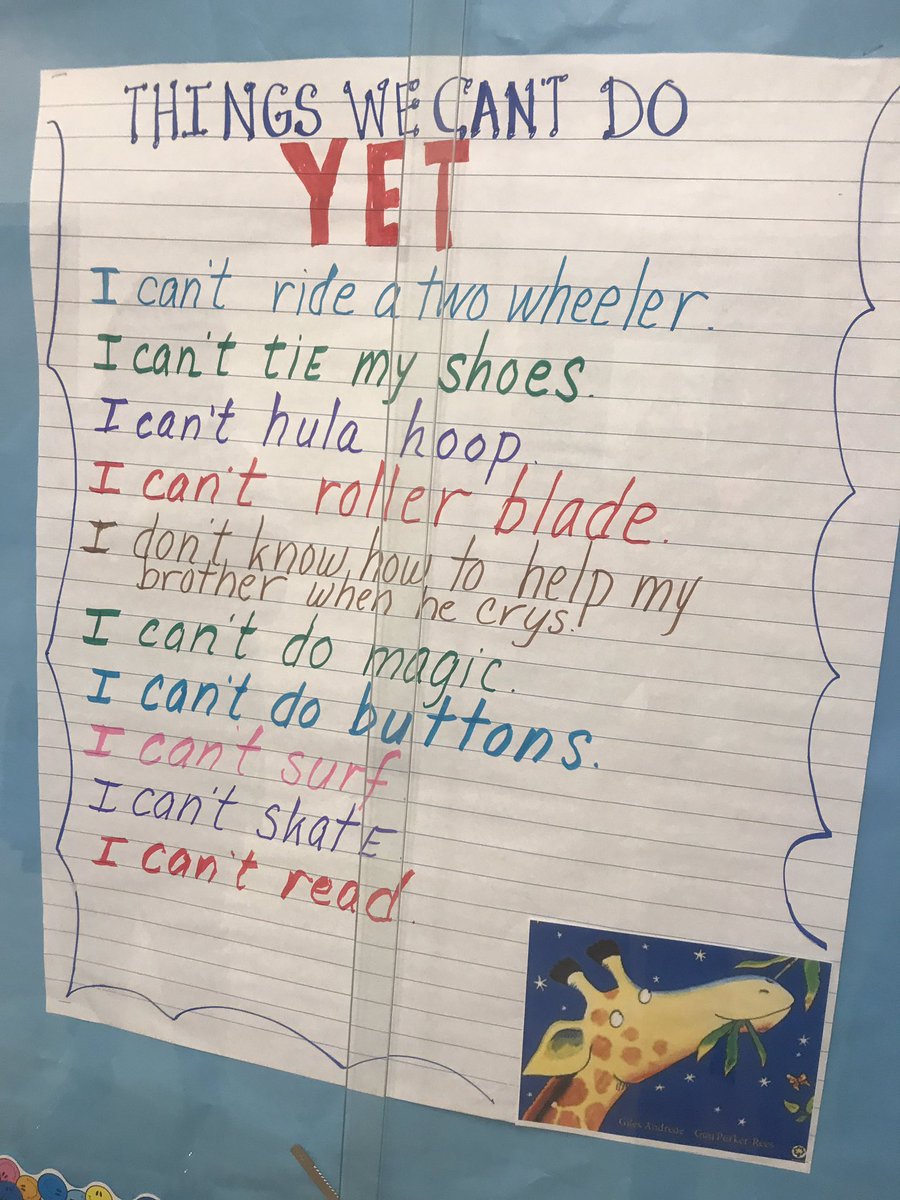 THINGS WE CANT DO
YET
I can't ride a two wheeler.
I can't tiE my shoes.
I can't hula hoop.
I can't roller blade.
I don't know how to help my
brother when he crys.
I can't do magic.
I can't do buttons.
I can't surf
I can't skatE
I can't read.
Giles Andreae Guy Parker-Rees